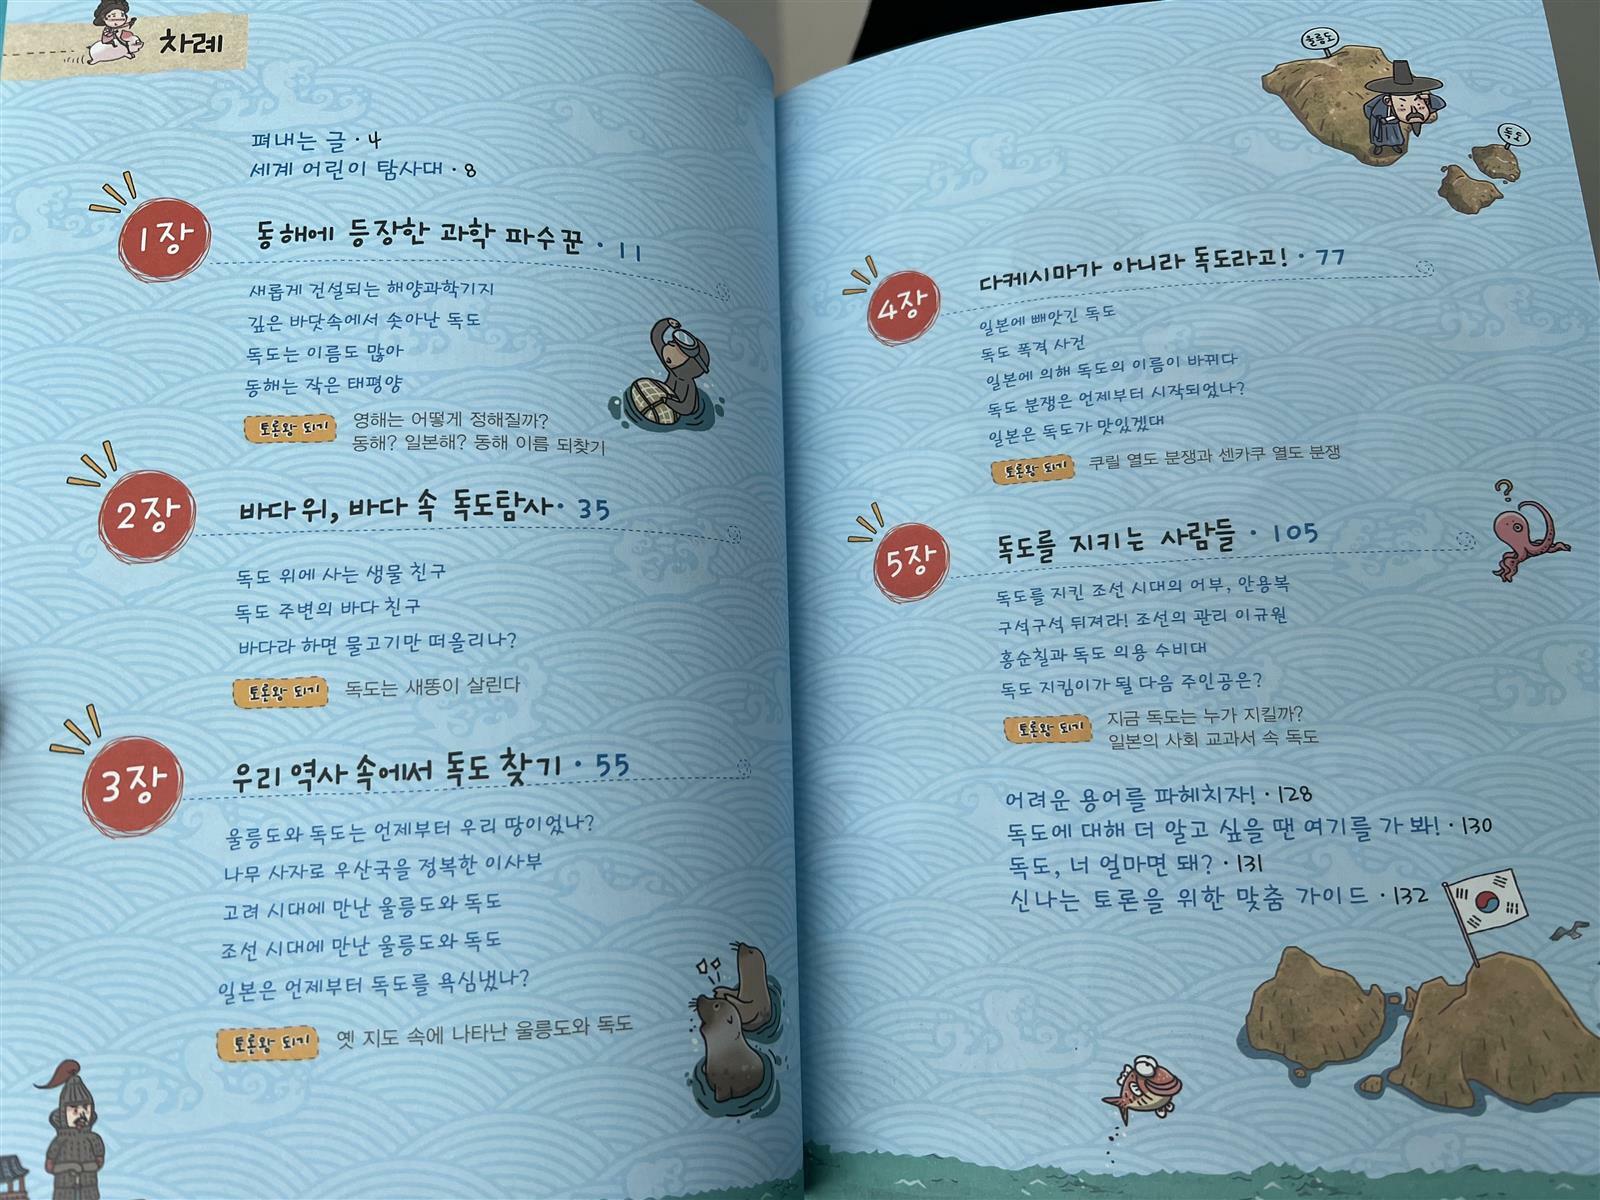 차례
펴내는 글 · 4
세계 어린이 탐사대 · 8
1장 동해에 등장한 과학 파수꾼 · 11
새롭게 건설되는 해양과학기지
깊은 바닷속에서 솟아난 독도
독도는 이름도 많아
동해는 작은 태평양
토론왕 되기 영해는 어떻게 정해질까?
동해? 일본해? 동해 이름 되찾기
2장 바다 위, 바다 속 독도탐사 · 35
독도 위에 사는 생물 친구
독도 주변의 바다 친구
바다라 하면 물고기만 떠올리나?
토론왕 되기 독도는 새똥이 살린다
3장 우리 역사 속에서 독도 찾기 · 55
울릉도와 독도는 언제부터 우리 땅이었나?
나무 사자로 우산국을 정복한 이사부
고려 시대에 만난 울릉도와 독도
조선 시대에 만난 울릉도와 독도
일본은 언제부터 독도를 욕심냈나?
토론왕 되기 옛 지도 속에 나타난 울릉도와 독도
울릉도
독도
4장 다케시마가 아니라 독도라고! · 77
일본에 빼앗긴 독도
독도 폭격 사건
일본에 의해 독도의 이름이 바뀌다
독도 분쟁은 언제부터 시작되었나?
일본은 독도가 맛있겠대
토론왕 되기 쿠릴 열도 분쟁과 센카쿠 열도 분쟁
5장 독도를 지키는 사람들 · 105
독도를 지킨 조선 시대의 어부, 안용복
구석구석 뒤져라! 조선의 관리 이규원
홍순칠과 독도 의용 수비대
독도 지킴이가 될 다음 주인공은?
토론왕 되기 지금 독도는 누가 지킬까?
일본의 사회 교과서 속 독도
어려운 용어를 파헤치자! · 128
독도에 대해 더 알고 싶을 땐 여기를 가 봐! · 130
독도, 너 얼마면 돼? · 131
신나는 토론을 위한 맞춤 가이드 · 132